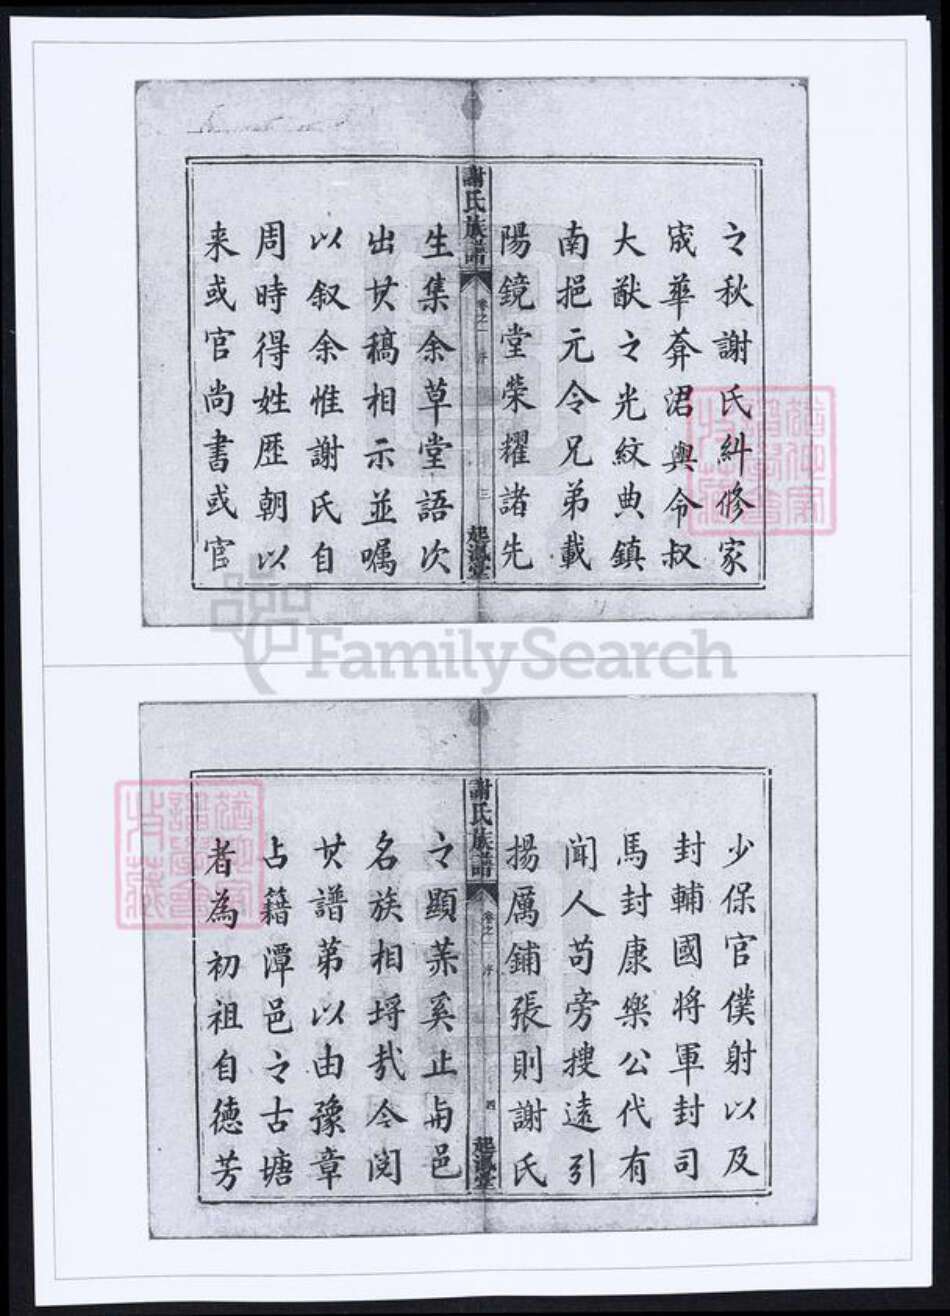 之秋謝氏糾修家
宬華弅涒與令叔
大猷之光紋典鎮
南挹元令兄弟載
陽鏡堂荣耀諸先
謝氏族譜
卷之一
序
三
起鳳堂
生集余草堂語次
出其稿相示並嘱
以叙余惟謝氏自
周時得姓歷朝以
来或官尚書或官
FamilySearch
少保官僕射以及
封輔國將軍封司
馬封康樂公代有
闻人苟旁搜遠引
揚厲鋪張則謝氏
謝氏族譜
卷之一
序
四
起鳳堂
之顯荣奚止与邑
名族相埒哉今閱
其譜第以由豫章
占籍潭邑之古塘
者為初祖自德芳